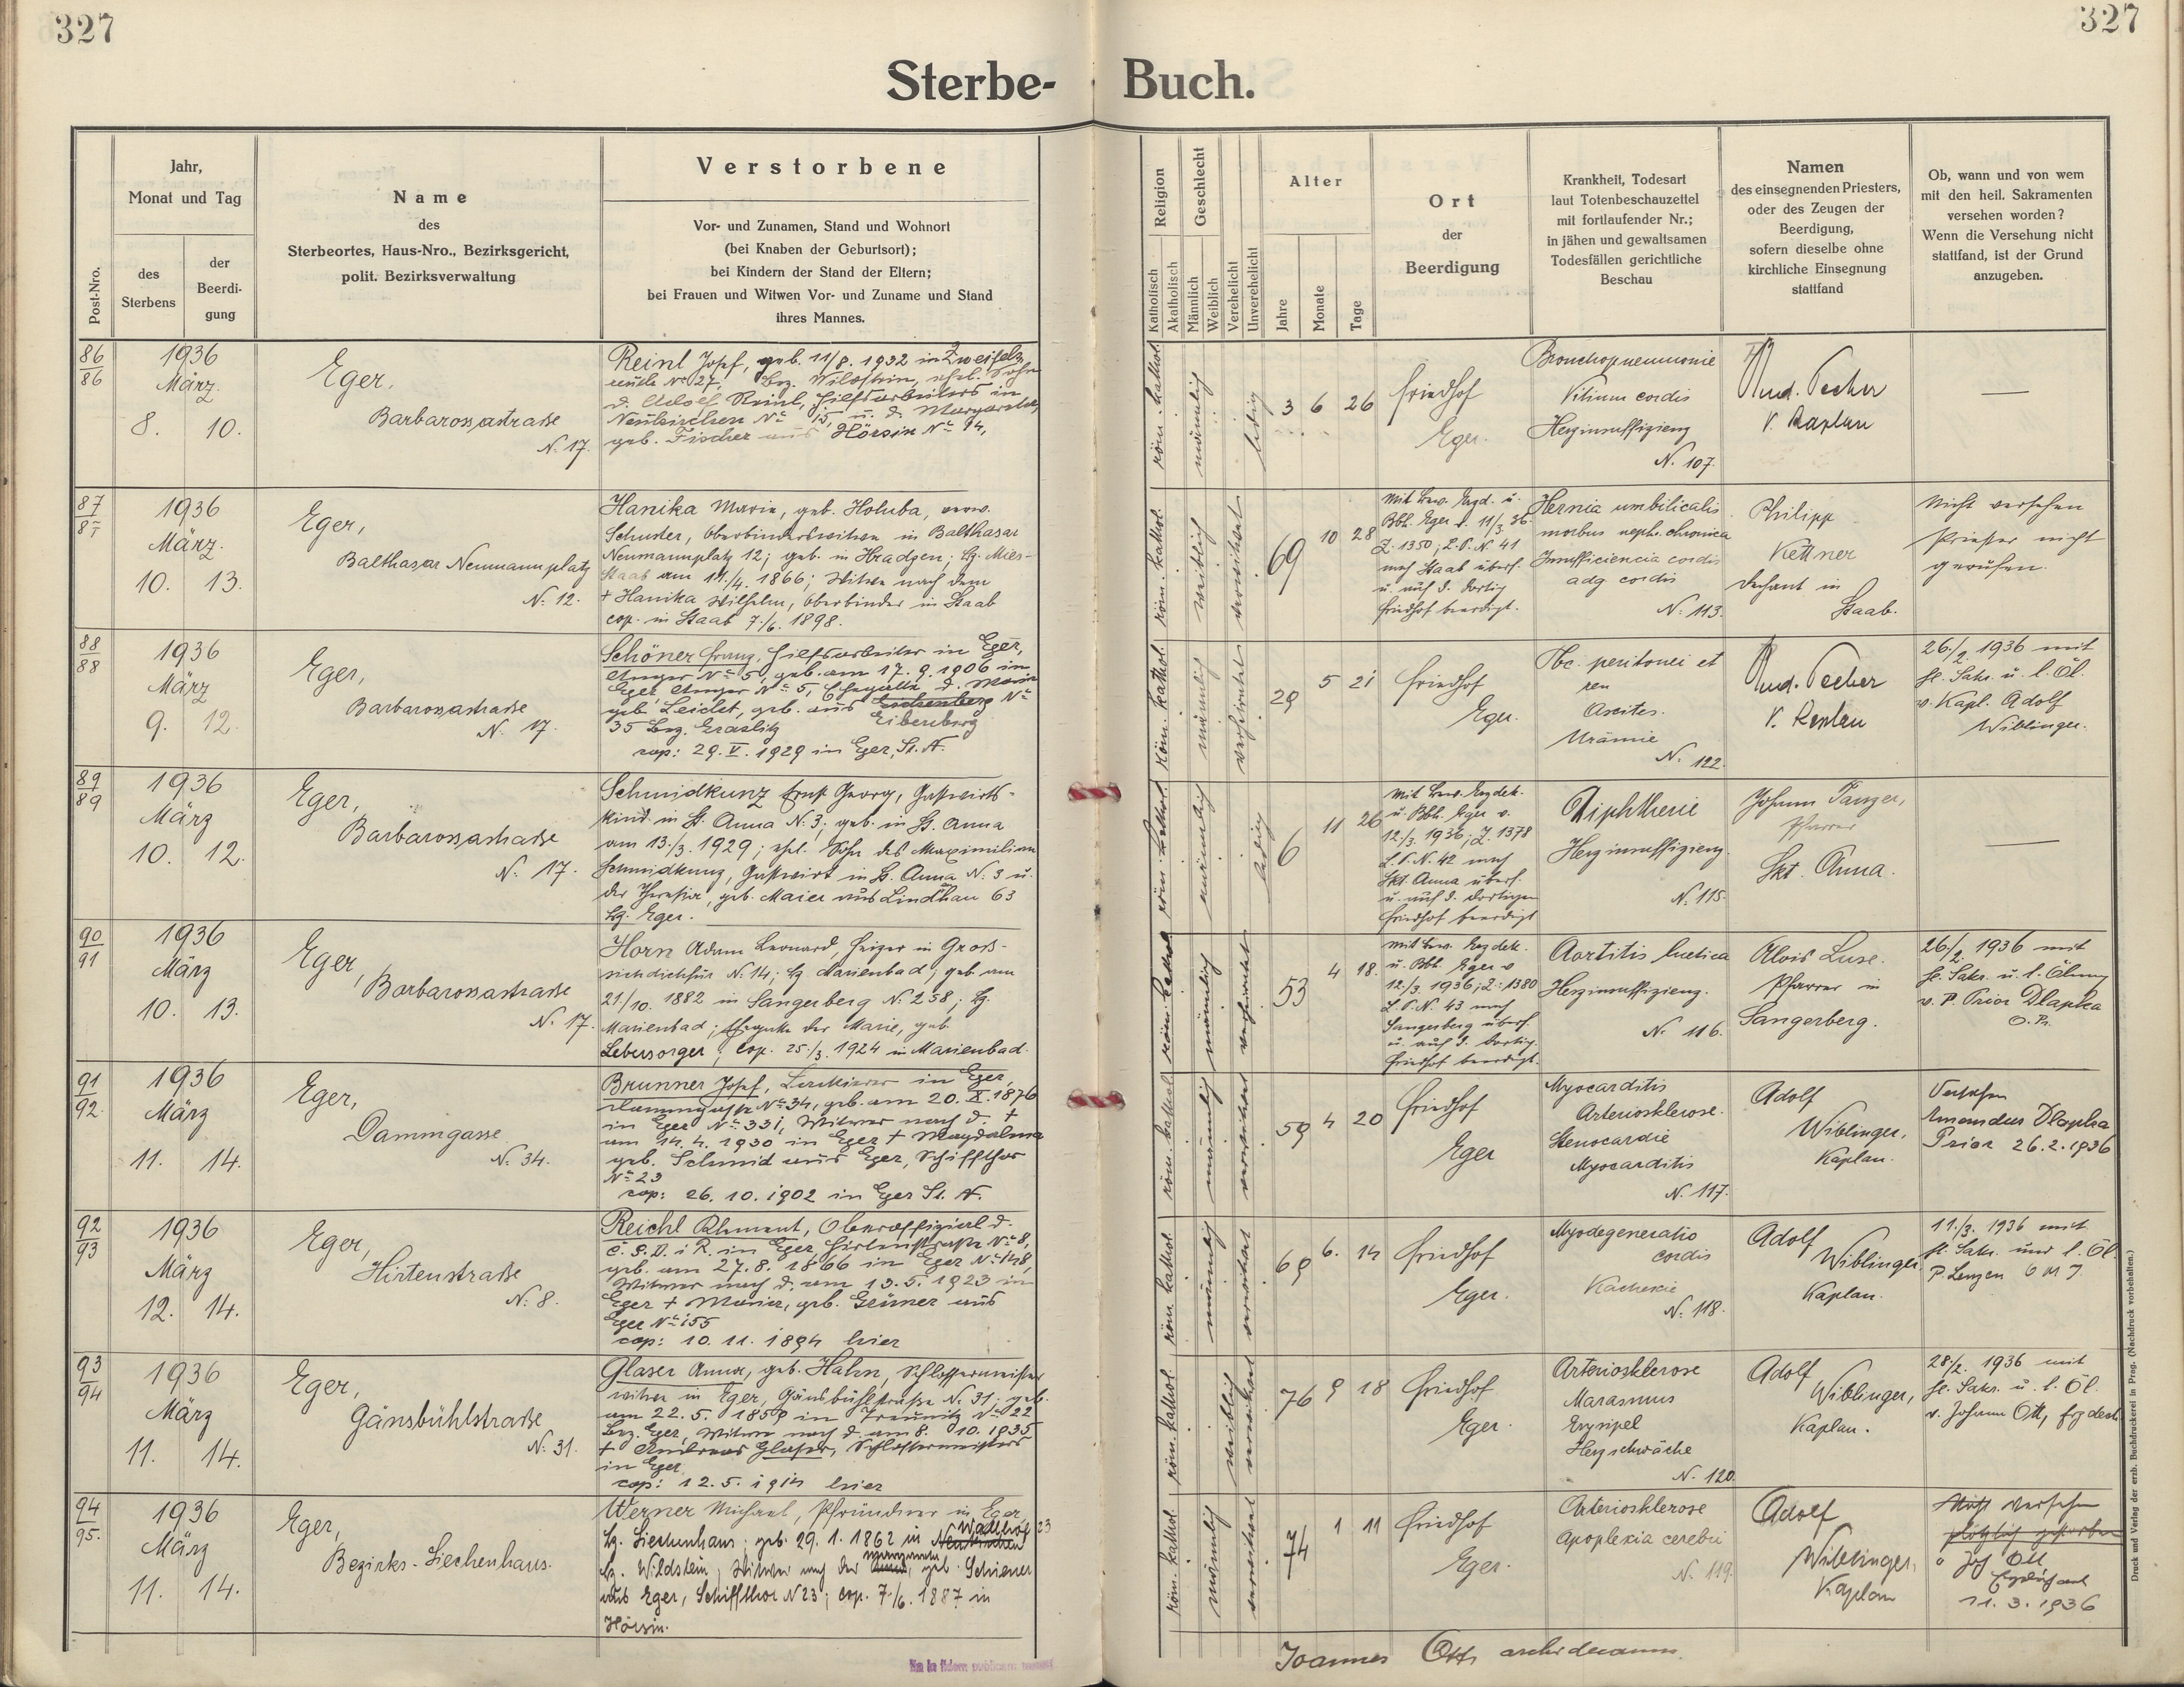 327
327
Sterbe-Buch.
Post-Nro.
Jahr,
Monat und Tag
des
Sterbens
der
Beerdi-
gung
Name
des
Sterbeortes, Haus-Nro., Bezirksgericht,
polit. Bezirksverwaltung
Verstorbene
Vor- und Zunamen, Stand und Wohnort
(bei Knaben der Geburtsort);
bei Kindern der Stand der Eltern;
bei Frauen und Witwen Vor- und Zuname und Stand
ihres Mannes.
Religion
Katholisch
Akatholisch
Geschlecht
Männlich
Weiblich
Verehelicht
Unverehelicht
Alter
Jahre
Monate
Tage
Ort
der
Beerdigung
Krankheit, Todesart
laut Totenbeschauzettel
mit fortlaufender Nr.;
in jähen und gewaltsamen
Todesfällen gerichtliche
Beschau
Namen
des einsegnenden Priesters,
oder des Zeugen der
Beerdigung,
sofern dieselbe ohne
kirchliche Einsegnung
stattfand
Ob, wann und von wem
mit den heil. Sakramenten
versehen worden?
Wenn die Versehung nicht
stattfand, ist der Grund
anzugeben.
86
86
1936
März.
8. 10.
Eger,
Barbarossastraße
N. 17.
Reinl Josef, geb. 11/8. 1932 in Zweifels
reuth Nº 27, Bez. Wildstein, ehel. Sohn
d. Adolf Reinl, Hilfsarbeiters in
Neukirchen Nº 15, u. d. Margareta,
geb. Fischer aus Hörsin Nº 94,
röm. kathol.
männlich
ledig
3 6 26
Friedhof
Eger.
Bronchopneumonie
Vitium cordis
Herzinsuffizienz
N. 107.
Rud. Pecher
V. Kaplan
—
87
87
1936
März.
10. 13.
Eger,
Balthasar Neumannplatz
N. 12.
Hanika Marie, geb. Holuba, verw.
Schuster, Oberbinderswitwe in Balthasar
Neumannplatz 12; geb. in Hradzen; Bz. Mies-
Staab am 11./4. 1866; Witwe nach dem
+ Hanika Wilhelm, Oberbinder in Staab
cop. in Staab 7./6. 1898.
röm. kathol.
weiblich
verwitwet
69 10 28
Mit Bew. Erzd. u.
Bbh. Eger v. 11/3 36
Z. 1350; L.P. N. 41
nach Staab überf.
u. auf d. dortig
Friedhof beerdigt.
Hernia umbilicalis
morbus neph. chronica
Insufficiencia cordis
adg cordis
N. 113.
Philipp
Kettner
Dechant in
Staab.
Nicht versehen
Priester nicht
gerufen.
88
88
1936
März
9. 12.
Eger,
Barbarossastraße
N. 17.
Schöner Franz, Hilfsarbeiter in Eger,
Anger Nº 5, geb. am 17. 9. 1906 in
Eger, Anger Nº 5, Ehegatte d. Marie
geb. Leicht, geb. aus Eschenberg Nº
Eibenberg
35 Bez. Graslitz
cop: 29. V. 1929 in Eger, St. N.
röm. kathol.
männlich
verheiratet
29 5 21
Friedhof
Eger.
Tbc. peritonei et
ren
Ascites.
Urämie
N. 122.
Rud. Pecher
V. Kaplan
26./2. 1936 mit
hl. Sakr. u. l. Öl.
v. Kapl. Adolf
Wiblinger.
89
89
1936
März
10. 12.
Eger,
Barbarossastraße
N. 17.
Schmidkunz Ernst Georg, Gastwirts-
kind in St. Anna N. 3; geb. in St. Anna
am 13./3. 1929; ehel. Sohn des Maximilian
Schmidkunz, Gastwirt in St. Anna N. 3 u.
der Theresia, geb. Maier aus Lindhau 63
Bz. Eger.
röm. kathol.
männlich
ledig
6 11 26
Mit Bew. Erzdek.
u. Bbh. Eger v.
12./3. 1936; Z. 1378
L.P. N. 42 nach
Skt. Anna überf.
u. auf d. dortigen
Friedhof beerdigt
Diphtherie
Herzinsuffizienz.
N. 115.
Johann Tanzer,
Pfarrer
Skt. Anna.
—
90
91
1936
März
10. 13.
Eger,
Barbarossastraße
N. 17.
Horn Adam Leonard, Heizer in Groß-
sichdichfür N. 14; Bz Marienbad; geb. am
21./10. 1882 in Sangerberg N. 258; Bz.
Marienbad; Ehegatte der Marie, geb.
Lebersorger; cop. 25./3. 1924 in Marienbad.
röm. kathol.
männlich
verheiratet
53 4 18.
Mit Bew. Erzdek.
u. Bbh. Eger v
12./3. 1936; Z. 1380
L.P. N. 43 nach
Sangerberg überf.
u. auf d. dortig.
Friedhof beerdigt.
Aortitis luetica
Herzinsuffizienz.
N. 116.
Alois Luse.
Pfarrer in
Sangerberg.
26./2. 1936 mit
hl. Sakr. u. l. Ölung
v. P. Prior Dlapka
O. Pr.
91
92.
1936
März
11. 14.
Eger,
Dammgasse
N. 34.
Brunner Josef, Lackierer in Eger,
Dammgasse Nº 34, geb. am 20. X. 1876
in Eger Nº 331, Witwer nach d. +
am 14. 4. 1930 in Eger + Magdalena
geb. Schmid aus Eger, Schiffthor
Nº 23
cop: 26. 10. 1902 in Eger St. N.
röm. kathol.
männlich
verwitwet
59 4 20
Friedhof
Eger
Myocarditis
Arteriosklerose.
Stenocardie
Myocarditis
N. 117.
Adolf
Wiblinger,
Kaplan.
Versehen
Amandus Dlapka
Prior 26. 2. 1936
92
93
1936
März
12. 14.
Eger,
Hirtenstraße
N. 8.
Reichl Klement, Oberoffizial d.
č. S. D. i R. in Eger Hirtenstraße Nº 8,
geb. am 27. 8. 1866 in Eger Nº 148,
Witwer nach d. am 13. 5. 1923 in
Eger + Maria, geb. Grüner aus
Eger Nº 155
cop: 10. 11. 1894 hier
röm. kathol.
männlich
verwitwet
69 6. 14
Friedhof
Eger.
Myodegeneratio
cordis
Kachexie
N. 118.
Adolf
Wiblinger
Kaplan.
11./3. 1936 mit
hl. Sakr. und l. Öl.
P. Lenzen
93
94
1936
März
11. 14.
Eger,
Gänsbühlstraße
N. 31.
Glaser Anna, geb. Hahn, Schlossermeisters
witwe in Eger, Gänsbühlstraße N. 31; geb.
am 22. 5. 1859 in Treunitz Nº 22
Bez. Eger, Witwe nach d. am 8. 10. 1935
+ Andreas Glaser, Schlossermeisters
in Eger
cop: 12. 5. 1914 hier
röm. kathol.
weiblich
verwitwet
76 9 18
Friedhof
Eger.
Arteriosklerose
Marasmus
Erysipel
Herzschwäche
N. 120.
Adolf
Wiblinger,
Kaplan.
28/2. 1936 mit
hl. Sakr. u. l. Öl.
v. Johann Ott, Erzdech.
94
95.
1936
März
11. 14.
Eger,
Bezirks-Siechenhaus.
Werner Michael, Pfründner in Eger
Bz. Siechenhaus; geb. 29. 1. 1862 in Neukirchen
Wallhof 23
Bz. Wildstein, Witwer nach der
Margareta
geb. Schiener
aus Eger, Schiffthor N 23; cop. 7./6. 1887 in
Hörsin.
röm. kathol.
männlich
verwitwet
74 1 11
Friedhof
Eger.
Arteriosklerose
Apoplexia cerebri
N. 119.
Adolf
Wiblinger,
Kaplan
Nicht versehen
plötzlich gestorben
Jos Ott
Erzdechant
11. 3. 1936
Joannes Ott archidecanus.
Druck und Verlag der erzb. Buchdruckerei in Prag. (Nachdruck vorbehalten.)